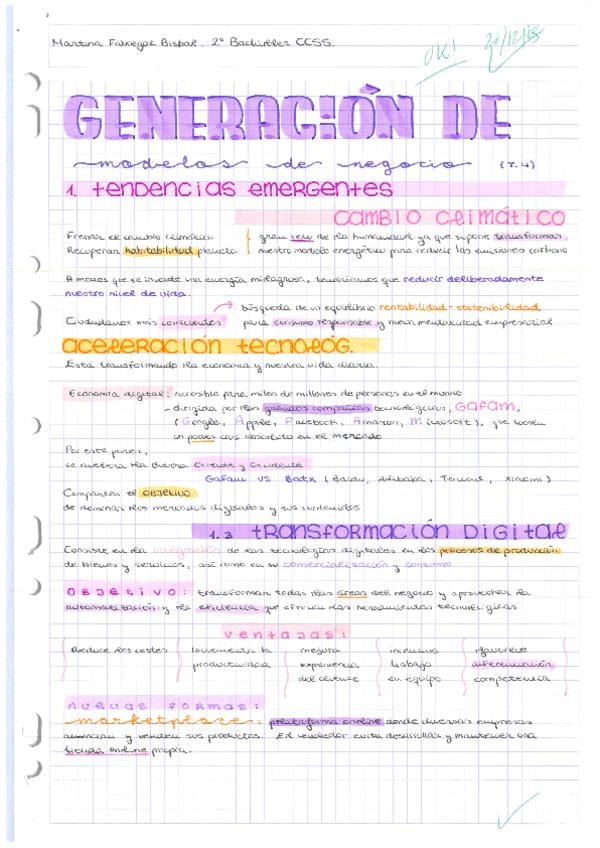 Martina Fabregat Bisbal. 2º Bachiller CCSS.
OK!
GENERACIÓN DE
modelos de negocio (T.4)
1. tendencias emergentes
cambio climático
Frenar el cambio climático
Recuperar habitabilidad planeta
gran reto de la humanidad ya que supone transformar
nuestro modelo energético para reducir las emisiones carbono
A menos que se invente una energía milagrosa, tendríamos que reducir deliberadamente
nuestro nivel de vida.
búsqueda de un equilibrio rentabilidad-sostenibilidad
Ciudadanos más conscientes para consumo responsable y nueva mentalidad empresarial
aceleración tecnológ.
Está transformando la economía y nuestra vida diaria.
Economía digital: accesible para miles de millones de personas en el mundo
- dirigida por las grandes compañías tecnológicas, GAFAM,
(Google, Apple, Facebook, Amazon, Microsoft), que tienen
un poder casi absoluto en el mercado
Por este poder,
se muestra la guerra Oriente y Occidente
GAFAM VS BATX (Baidu, Alibaba, Tencent, Xiaomi)
Comparten el OBJETIVO
de dominar los mercados digitales y sus contenidos
1.2 transformación digital
Consiste en la integración de las tecnologías digitales en los procesos de producción
de bienes y servicios, así como en su comercialización y consumo
OBJETIVO: transformar todas las áreas del negocio y aprovechar la
automatización y la eficiencia que ofrecen las herramientas tecnológicas
ventajas:
Reduce los costes
Incrementa la
productividad
mejora
experiencia
del cliente
incentiva
trabajo
en equipo
favorece
diferenciación
competencia
nuevas formas:
marketplace: plataforma online donde diversas empresas
anuncian y venden sus productos. El vendedor evita desarrollar y mantener una
tienda online propia.